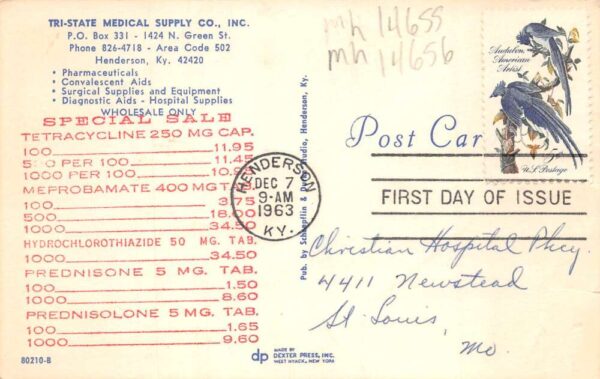 TRI-STATE MEDICAL SUPPLY CO., INC.
P.O. Box 331 - 1424 N. Green St.
Phone 826-4718 - Area Code 502
Henderson, Ky. 42420
• Pharmaceuticals
• Convalescent Aids
• Surgical Supplies and Equipment
• Diagnostic Aids - Hospital Supplies
WHOLESALE ONLY
SPECIAL SALE
TETRACYCLINE 250 MG CAP.
100 11.95
500 PER 100 11.45
1000 PER 100 10.95
MEPROBAMATE 400 MG T
100 3.75
500 18.00
1000 34.50
HYDROCHLOROTHIAZIDE 50 MG. TAB.
1000 34.50
PREDNISONE 5 MG. TAB.
100 1.50
1000 8.60
PREDNISOLONE 5 MG. TAB.
100 1.65
1000 9.60
80210-B
mh 14655
mh 14656
Audubon,
American
Artist
5c
U.S. Postage
Post Car
HENDERSON
DEC 7
9-AM
1963
KY.
FIRST DAY OF ISSUE
Pub. by Schaefflin & Studio, Henderson, Ky.
Christian Hospital Phcy.
4411 Newstead
St Louis,
Mo.
dp
MADE BY
DEXTER PRESS, INC.
WEST NYACK, NEW YORK